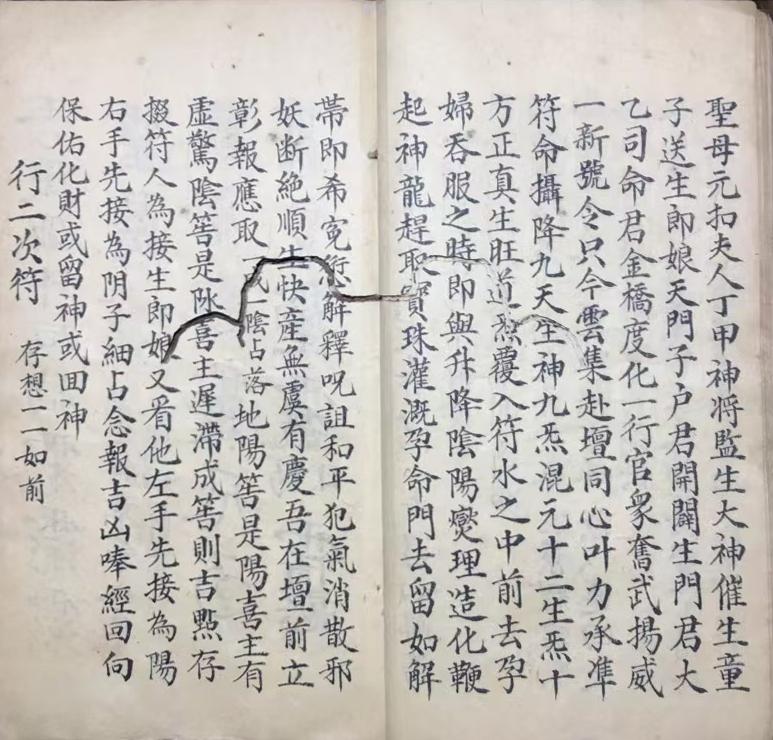 聖母元扣夫人丁甲神将監生大神催生童
子送生郎娘天門子户君開闢生門君大
乙司命君金橋度化一行官衆奮武揚威
一新號令只今雲集赴壇同心叶力承準
符命攝降九天生神九炁混元十二生炁十
方正真生旺道炁覆入符水之中前去孕
婦吞服之時即與升降陰陽燮理造化鞭
起神龍趕取寶珠灌溉孕命門去留如解
帯即希寃愆解釋呪詛和平犯氣消散邪
妖断絶順生快産無虞有慶吾在壇前立
彰報應取一或一陰占落地陽筶是陽喜主有
虚驚陰筶是陰喜主遲滯成筶則吉㸃存
掇符人為接生郎娘又看他左手先接為陽
右手先接為阴子細占念報吉凶唪經回向
保佑化財或留神或回神
行二次符 存想一一如前